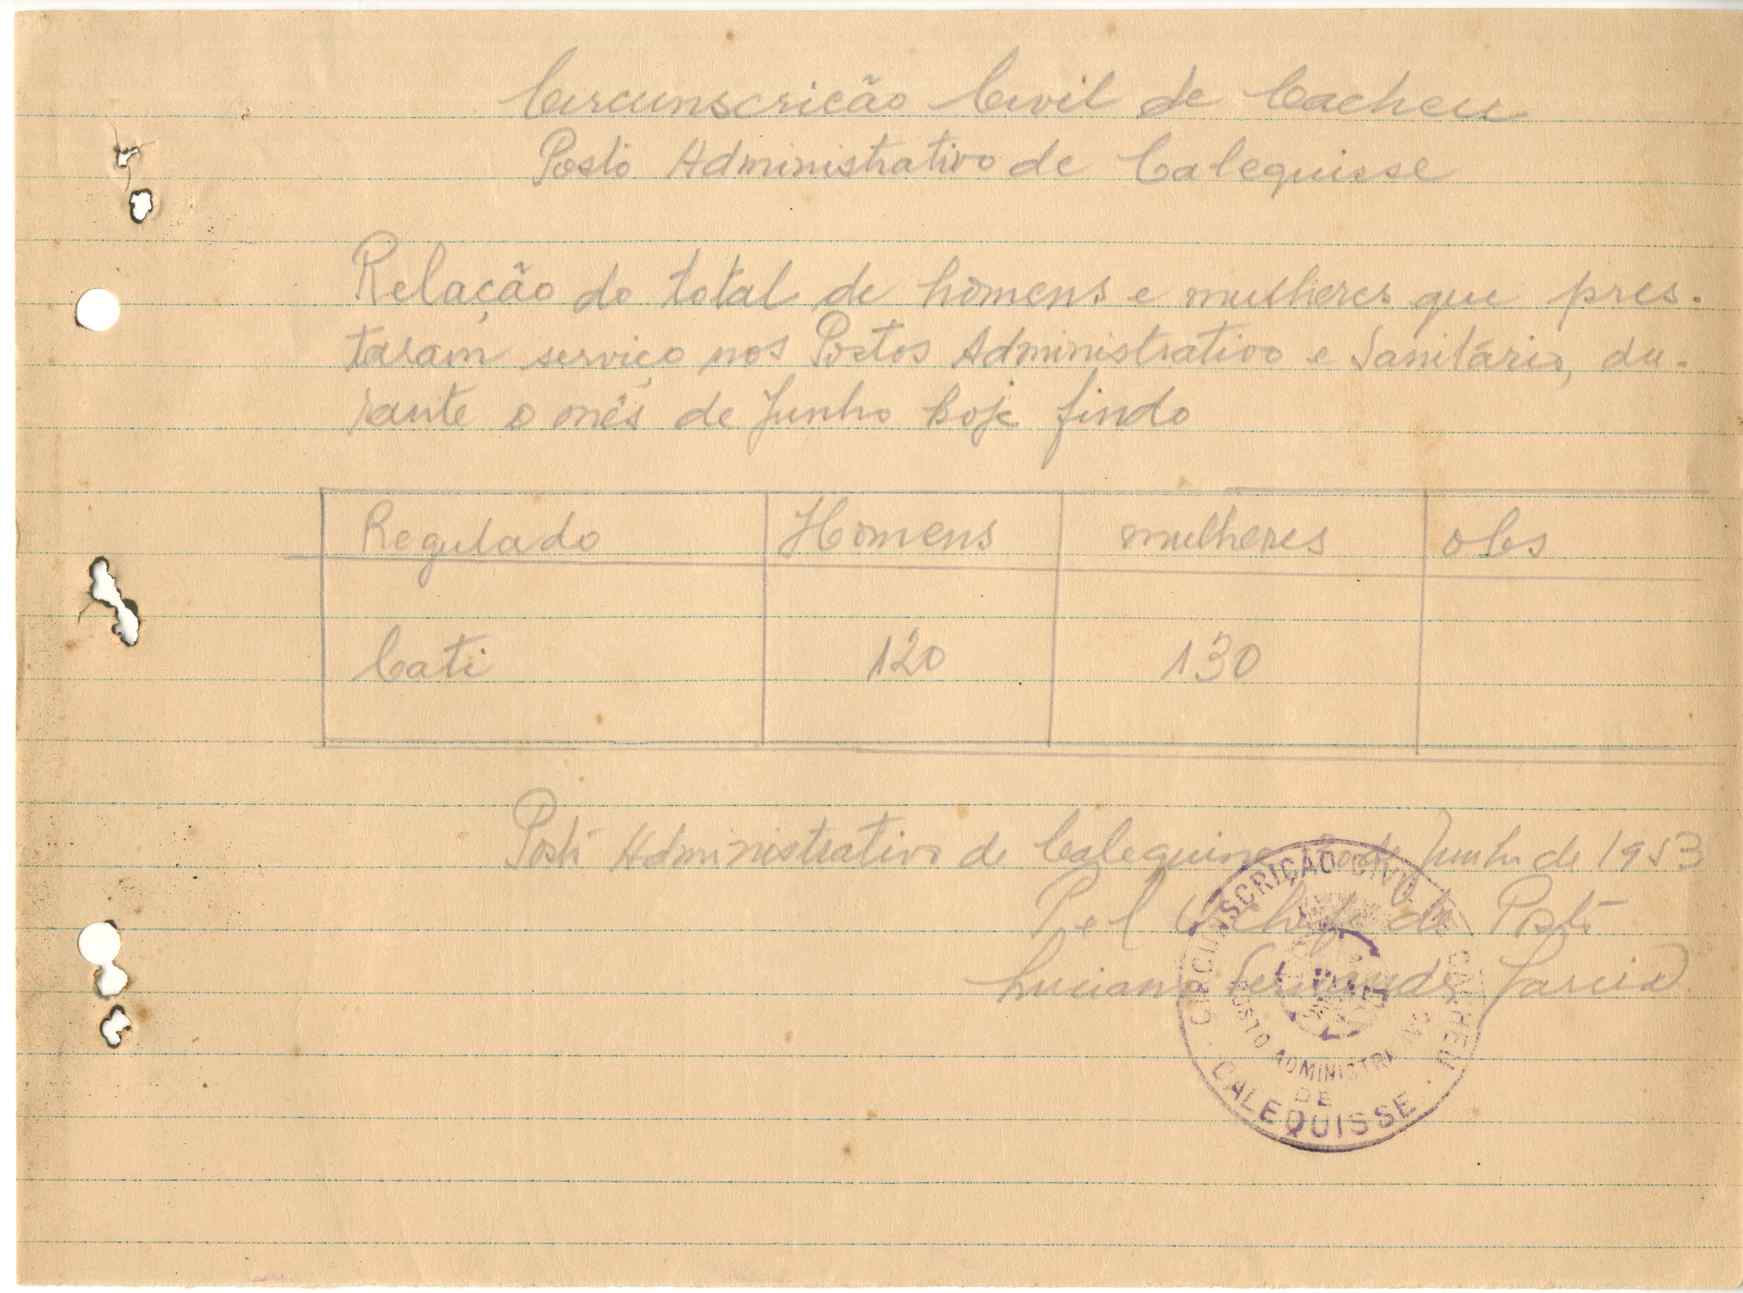 Circunscricão Civil de Cacheu
Posto Administrativo de Calequisse
Relação do total de homens e mulheres que pres-
taram serviço nos Postos Administrativo e Sanitário, du-
rante o mês de Junho hoje findo
Regulado Homens mulheres obs
Cati 120 130
Posto Administrativo de Calequisse 30 de Junho de 1953
Pel O chefe de Posto
Luciano Fernandes Garcia
CIRCUNSCRIÇÃO CIVIL DE CACHEU
POSTO ADMINISTRATIVO
DE
CALEQUISSE